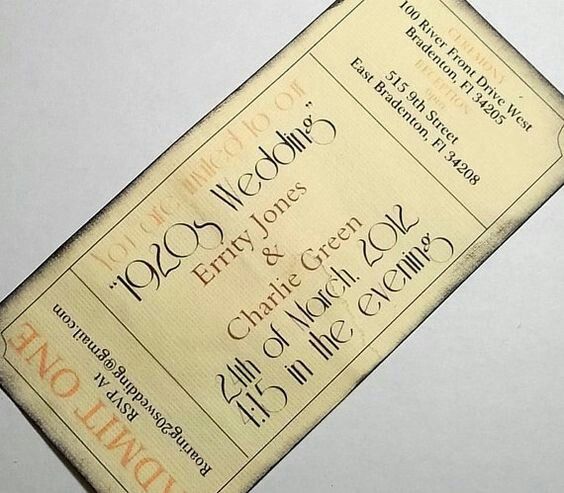 You are invited to our
"1920s Wedding"
Errity Jones
&
Charlie Green
24th of March, 2012
4:15 in the evening
CEREMONY
100 River Front Drive West
Bradenton, Fl 34205
RECEPTION
515 9th Street
East Bradenton, Fl 34208
ADMIT ONE
RSVP At
Roaring20swedding@gmail.com